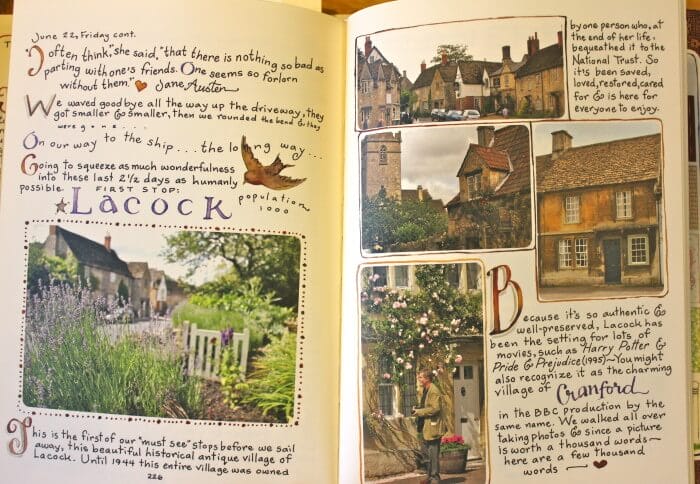 June 22, Friday cont.
"I often think," she said, "that there is nothing so bad as
parting with one's friends. One seems so forlorn
without them." Jane Austen
We waved goodbye all the way up the driveway, they
got smaller & smaller, then we rounded the bend & they
were gone....
On our way to the ship...the long way...
Going to squeeze as much wonderfulness
into these last 2 1/2 days as humanly
possible. FIRST STOP:
Lacock
population
1000
This is the first of our "must see" stops before we sail
away, this beautiful historical antique village of
Lacock. Until 1944 this entire village was owned
226
by one person who, at
the end of her life,
bequeathed it to the
National Trust. So
it's been saved,
loved, restored, cared
for & is here for
everyone to enjoy.
Because it's so authentic &
well-preserved, Lacock has
been the setting for lots of
movies, such as Harry Potter &
Pride & Prejudice (1995)~You might
also recognize it as the charming
village of Cranford
in the BBC production by the
same name. We walked all over
taking photos & since a picture
is worth a thousand words~
here are a few thousand
words —